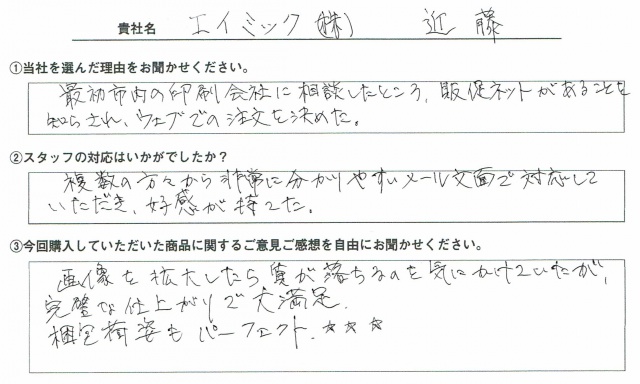 貴社名 エイミック(株) 近藤
①当社を選んだ理由をお聞かせください。
最初市内の印刷会社に相談したところ、販促ネットがあることを
知らされ、ウェブでの注文を決めた。
②スタッフの対応はいかがでしたか？
複数の方々から非常に分かりやすいメール文面で対応して
いただき、好感が持てた。
③今回購入していただいた商品に関するご意見ご感想を自由にお聞かせください。
画像を拡大したら質が落ちるのを気にかけていたが、
完璧な仕上がりで大満足。
梱包荷姿もパーフェクト。☆☆☆